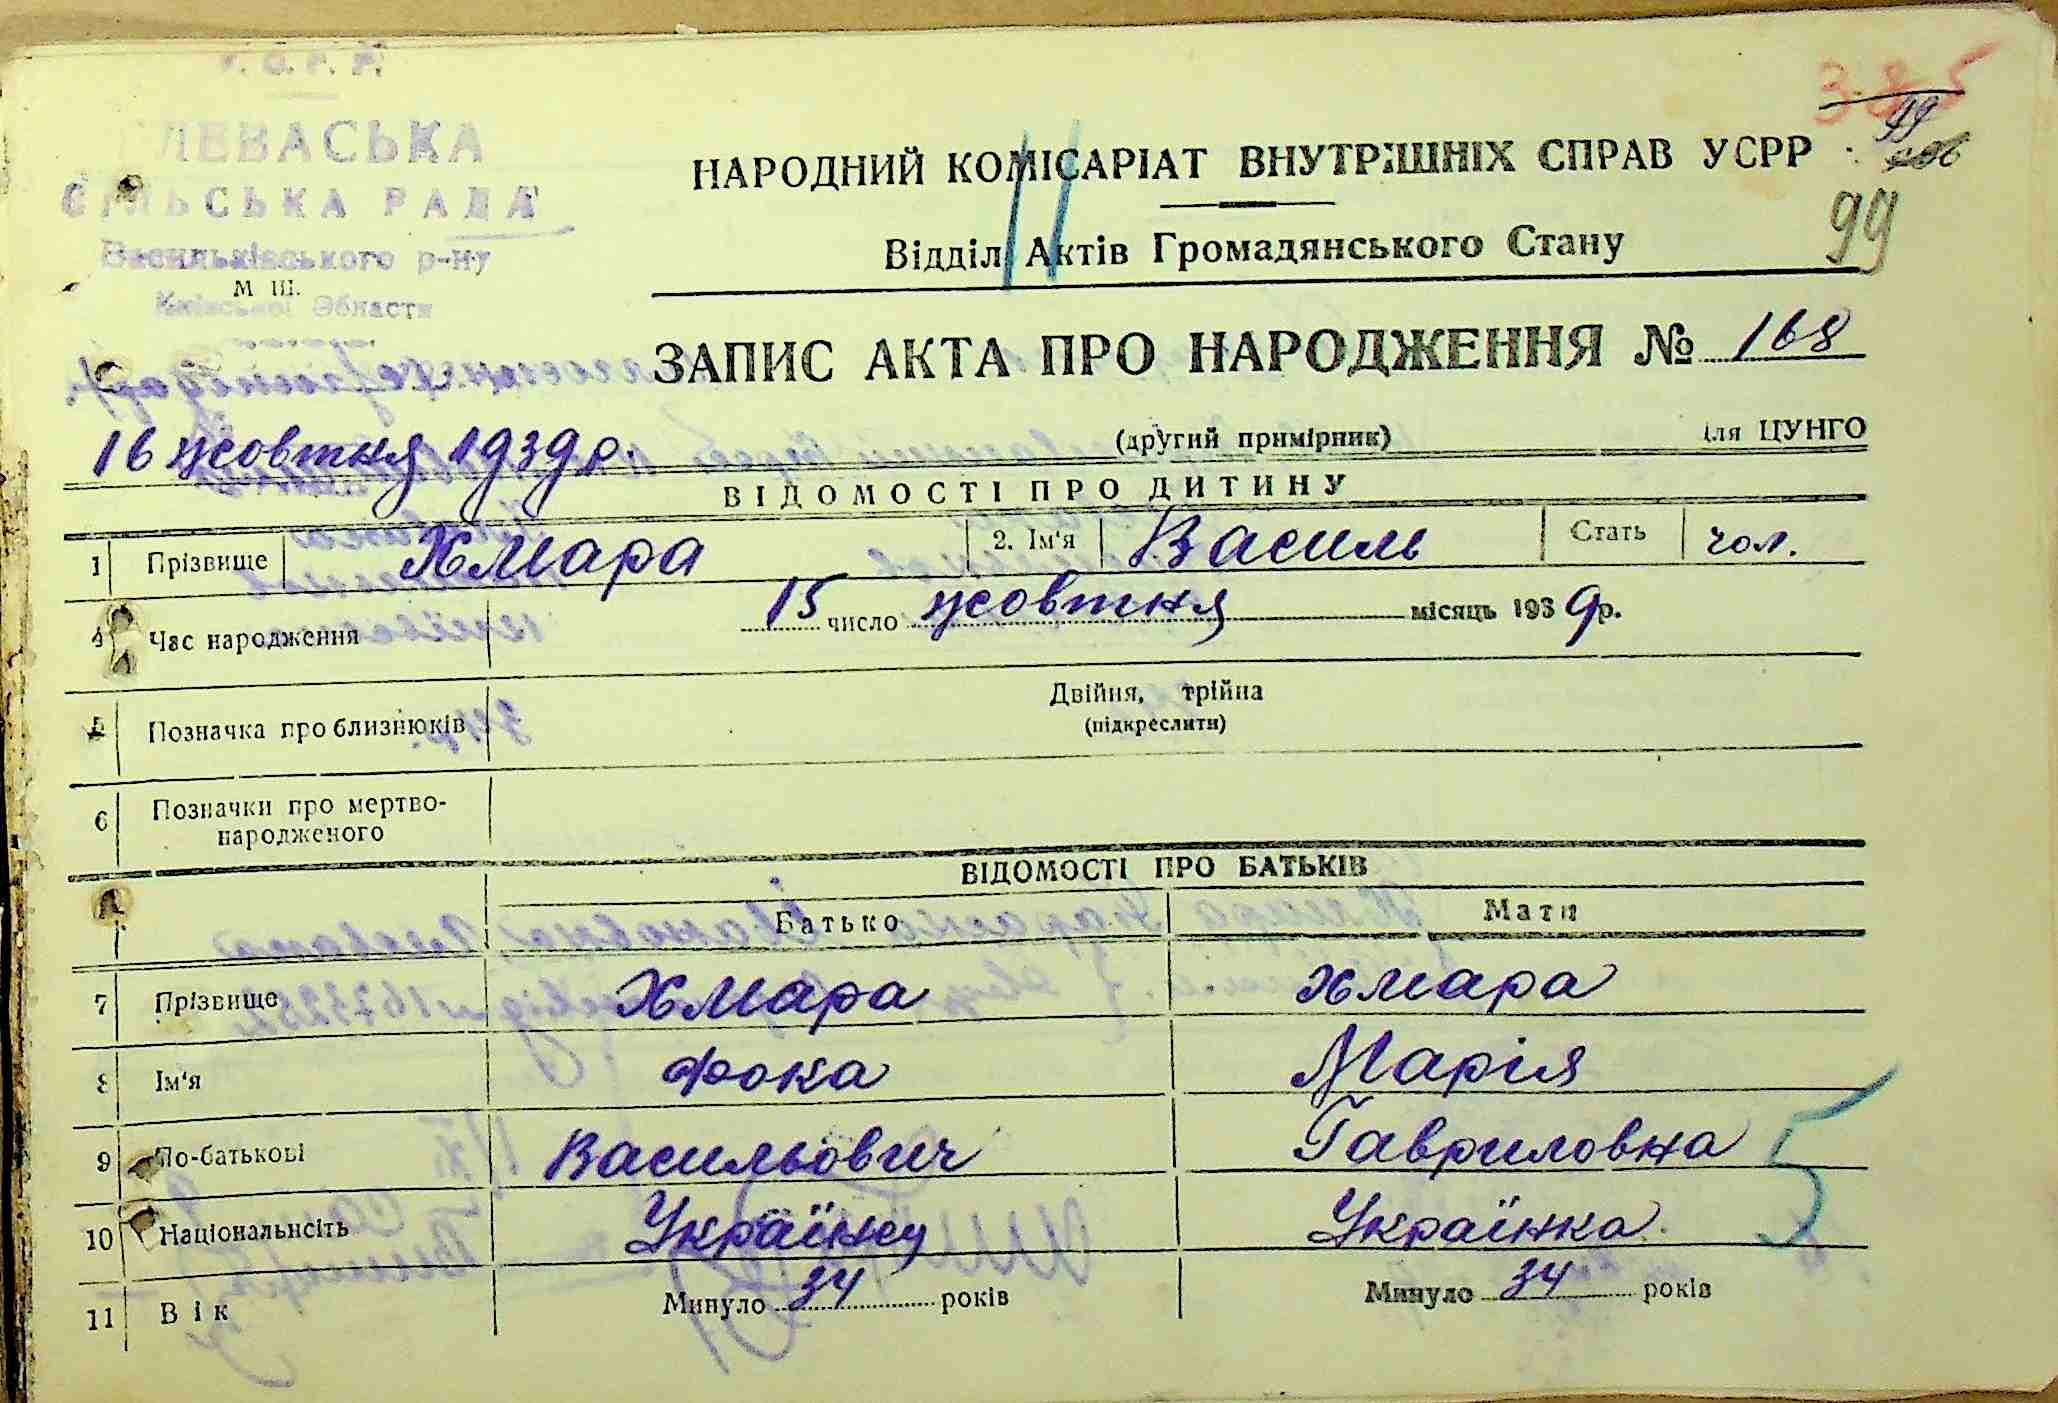 У. С. Р. Р.
ПЛЕВАСЬКА
СІЛЬСЬКА РАДА
Васильківського р-ну
М Ш.
Київської Области
385
99
НАРОДНИЙ КОМІСАРІАТ ВНУТРІШНІХ СПРАВ УСРР
99
Відділ Актів Громадянського Стану
ЗАПИС АКТА ПРО НАРОДЖЕННЯ № 168
16 жовтня 1939 р. (другий примірник) для ЦУНГО
ВІДОМОСТІ ПРО ДИТИНУ
1 Прізвище Хмара 2. Ім'я Василь Стать чол.
4 Час народження 15 число жовтня місяць 1939 р.
5 Позначка про близнюків Двійня, трійна
(підкреслити)
6 Позначки про мертво-
народженого
ВІДОМОСТІ ПРО БАТЬКІВ
Батько Мати
7 Прізвище Хмара Хмара
8 Ім'я Фока Марія
9 По-батькові Васильович Гавриловна
5
10 Національність Українец Українка
11 Вік Минуло 34 років Минуло 34 років